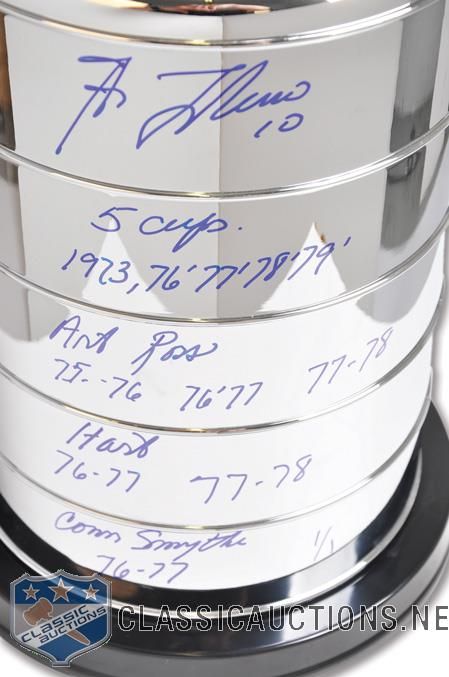 10
5 cup.
1973, 76' 77' 78' 79'
Art Ross
75--76 76'77 77-78
Hart
76-77 77-78
Conn Smythe 1/1
76-77
CLASSIC AUCTIONS
CLASSICAUCTIONS.NE